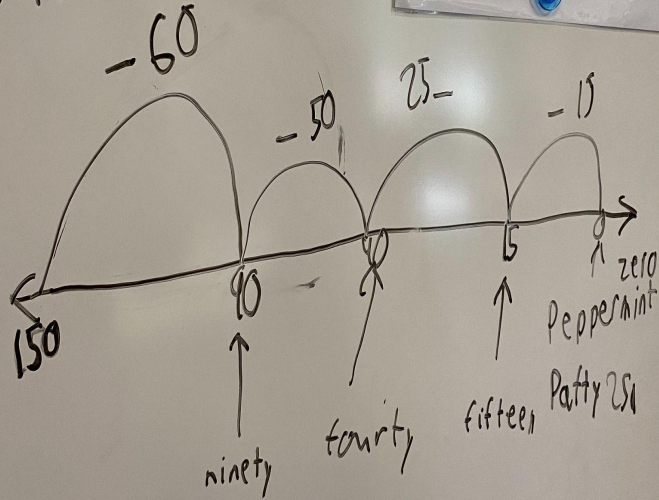 -60
-50
25-
-15
150
90
40
15
0
zero
ninety
fourty
fifteen
Peppermint
Patty 251